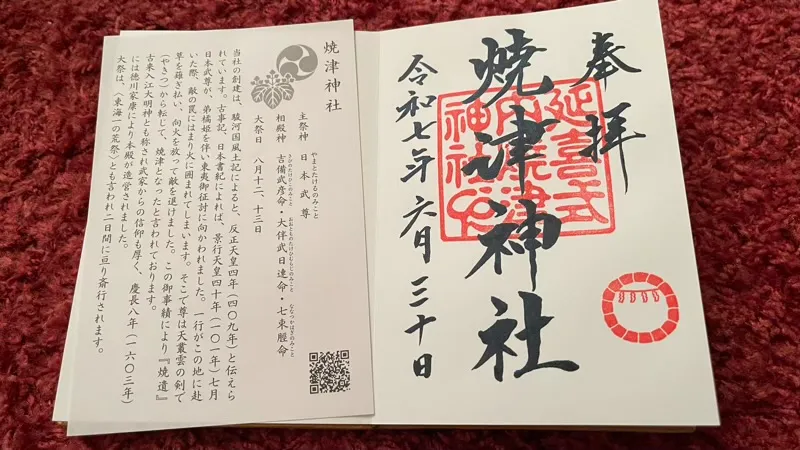 奉拝
延喜式
内焼津
神社
焼津神社
令和七年 六月 三十日
焼津神社
やまとたけるのみこと
主祭神 日本武尊
きびのたけひこのみこと おおとものたけひむらじのみこと ななつかはぎのみこと
相殿神 吉備武彦命・大伴武日連命・七束脛命
大祭日 八月十二、十三日
当社の創建は、駿河国風土記によると、反正天皇四年(四〇九年)と伝えら
れています。古事記、日本書紀によれば、景行天皇四十年(一〇一年)七月
日本武尊が、弟橘姫を伴い東夷御征討に向かわれました。一行がこの地に赴
いた際、敵の罠にはまり火に囲まれてしまいます。そこで尊は天叢雲の剣で
草を薙ぎ払い、向火を放って敵を退けました。この御事績により『焼遺』
(やきつ)から転じて、焼津となったと言われております。
古来入江大明神とも称され武家からの信仰も厚く、慶長八年(一六〇三年)
には徳川家康により本殿が造営されました。
大祭は、〈東海一の荒祭〉とも言われ二日間に亘り斎行されます。